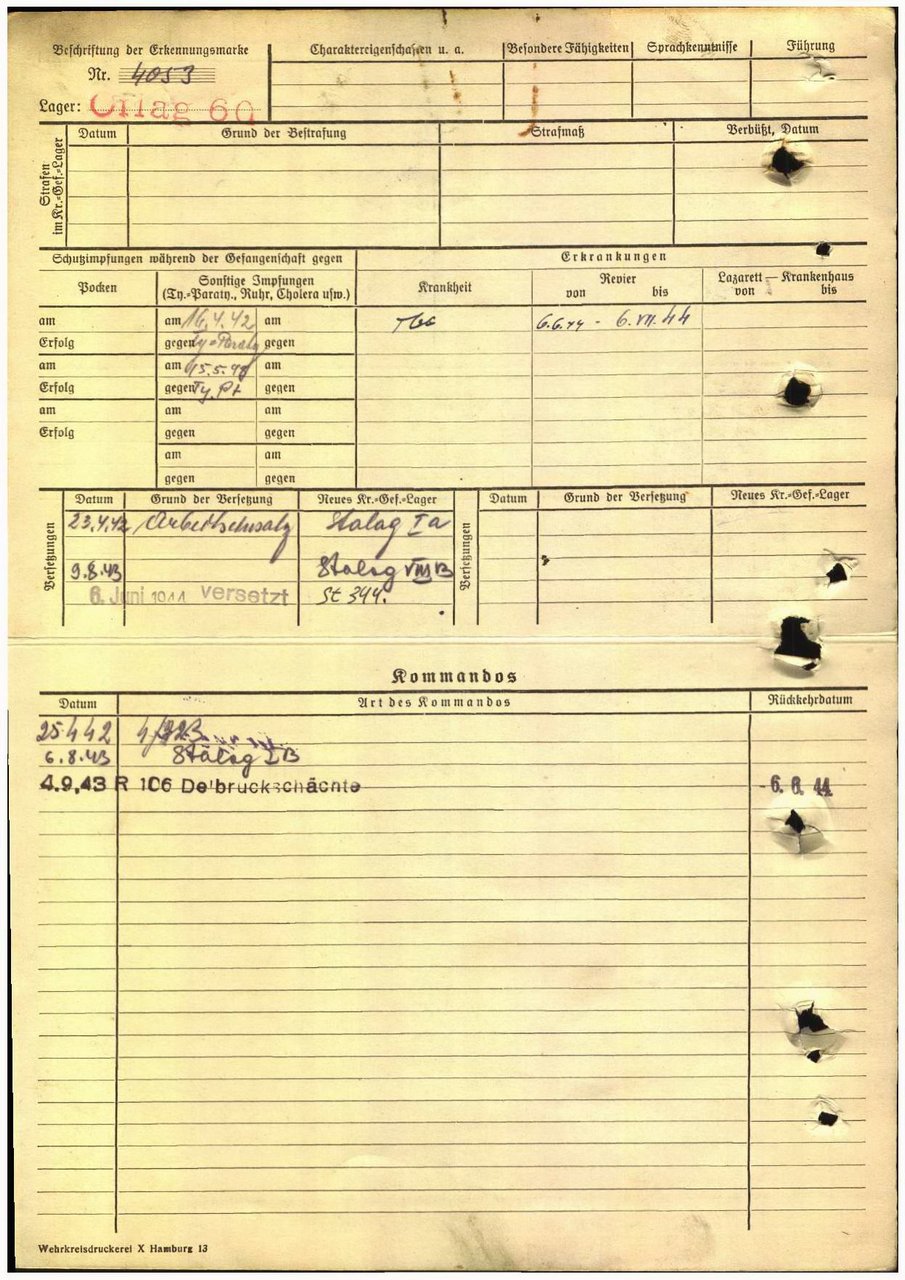 Beschriftung der Erkennungsmarke
Nr. 4053
Lager: Oflag 60
Charaktereigenschaften u. a.
Besondere Fähigkeiten
Sprachkenntnisse
Führung
Strafen im Kr.-Gef.-Lager
Datum
Grund der Bestrafung
Strafmaß
Verbüßt, Datum
Schutzimpfungen während der Gefangenschaft gegen
Erkrankungen
Pocken
Sonstige Impfungen
(Ty.-Paraty., Ruhr, Cholera usw.)
Krankheit
Revier
von bis
Lazarett — Krankenhaus
von bis
am am 16.4.42 am Tbc 6.6.44 - 6.VII.44
Erfolg gegen Ty-Paraty gegen
am am 15.5. am
Erfolg gegen Ty. Pt gegen
am am am
Erfolg gegen gegen
am am
gegen gegen
Versetzungen
Datum Grund der Versetzung Neues Kr.-Gef.-Lager
23.4.42 Arbeitseinsatz Stalag I a
9.8.43 Stalag VIII B
6. Juni 1944 versetzt St 344.
Versetzungen
Datum Grund der Versetzung Neues Kr.-Gef.-Lager
Kommandos
Datum Art des Kommandos Rückkehrdatum
25 4 42
6.8.43 Stalag I B
4.9.43 R 106 Delbrückschächte - 6. 6. 44
Wehrkreisdruckerei X Hamburg 13